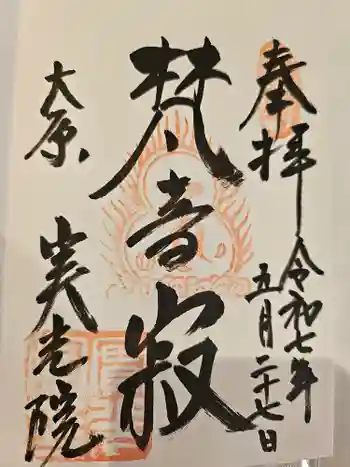 奉拝
令和七年
五月二十七日
梵音寂
大原
実光院